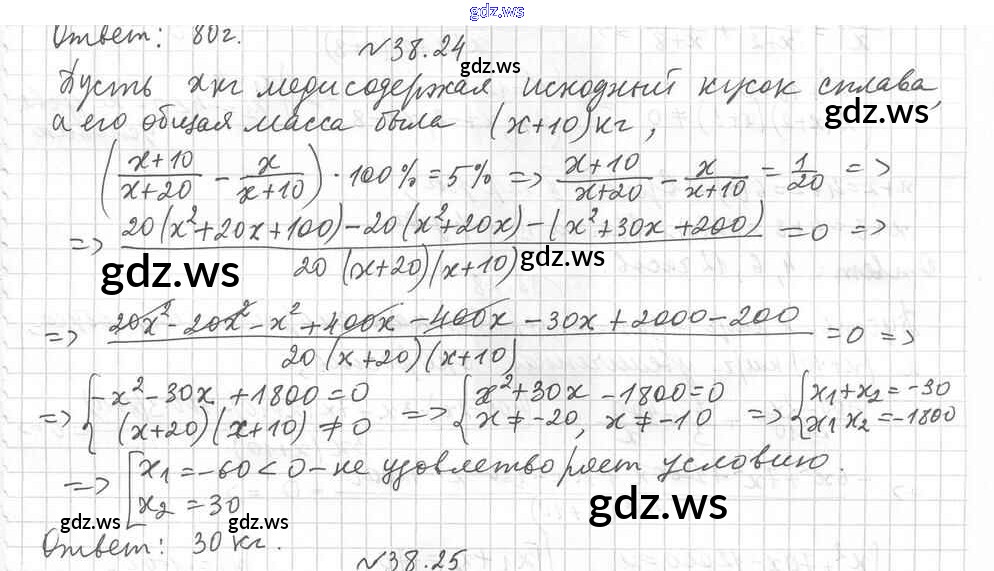 gdz.ws
Ответ: 80г.
№38.24
gdz.ws
Пусть x кг меди содержал исходный кусок сплава,
gdz.ws
а его общая масса была (x+10) кг,
((x+10)/(x+20) - x/(x+10)) · 100% = 5% => (x+10)/(x+20) - x/(x+10) = 1/20 =>
=> (20(x²+20x+100) - 20(x²+20x) - (x²+30x+200))/(20(x+20)(x+10)) = 0 =>
gdz.ws gdz.ws
=> (20x² - 20x² - x² + 400x - 400x - 30x + 2000 - 200)/(20(x+20)(x+10)) = 0 =>
=> { -x² - 30x + 1800 = 0 => { x² + 30x - 1800 = 0 => { x₁ + x₂ = -30
(x+20)(x+10) ≠ 0 x ≠ -20, x ≠ -10 x₁ x₂ = -1800
=> [ x₁ = -60 < 0 - не удовлетворяет условию.
x₂ = 30
gdz.ws gdz.ws gdz.ws
Ответ: 30 кг.
№38.25